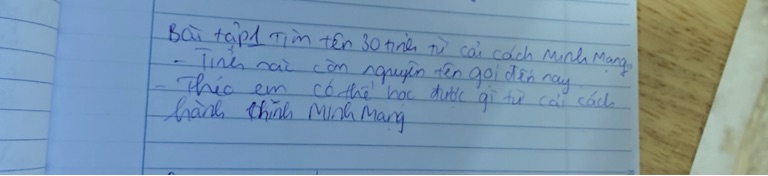 Bài tập1 Tìm tên 30 tỉnh từ cải cách Minh Mạng
- Tỉnh nào còn nguyên tên gọi đến nay
- Theo em có thể học được gì từ cải cách
hành chính Minh Mạng